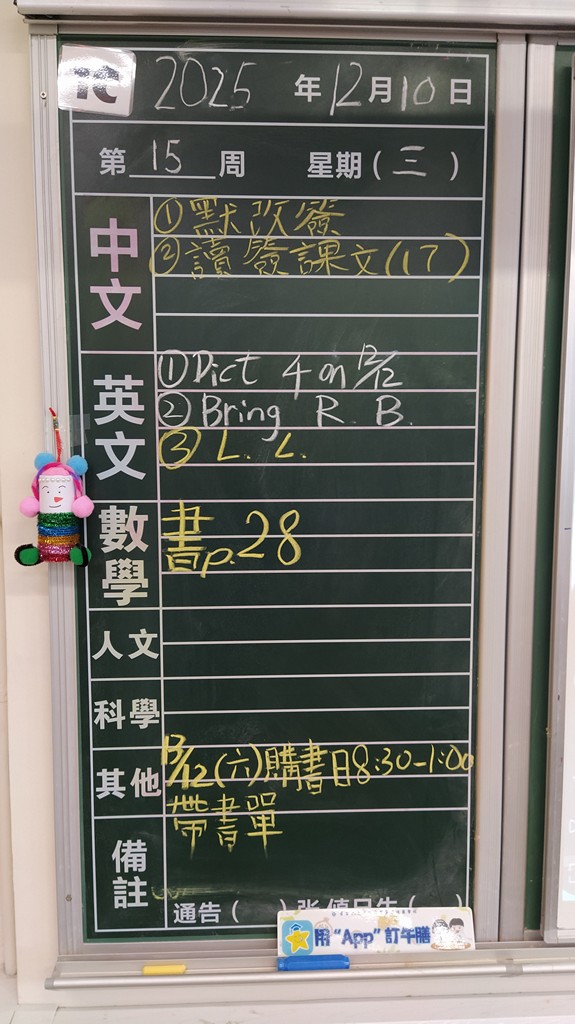 1C
2025 年 12 月 10 日
第 15 周 星期(三)
中文
①默改簽
②讀簽課文(17)
英文
①Dict 4 on 12/12
②Bring R. B.
③ L. L.
數學
書p.28
人文
科學
其他
13/12(六)購書日8:30-1:00
帶書單
備註
通告( )張
用“App”訂午膳